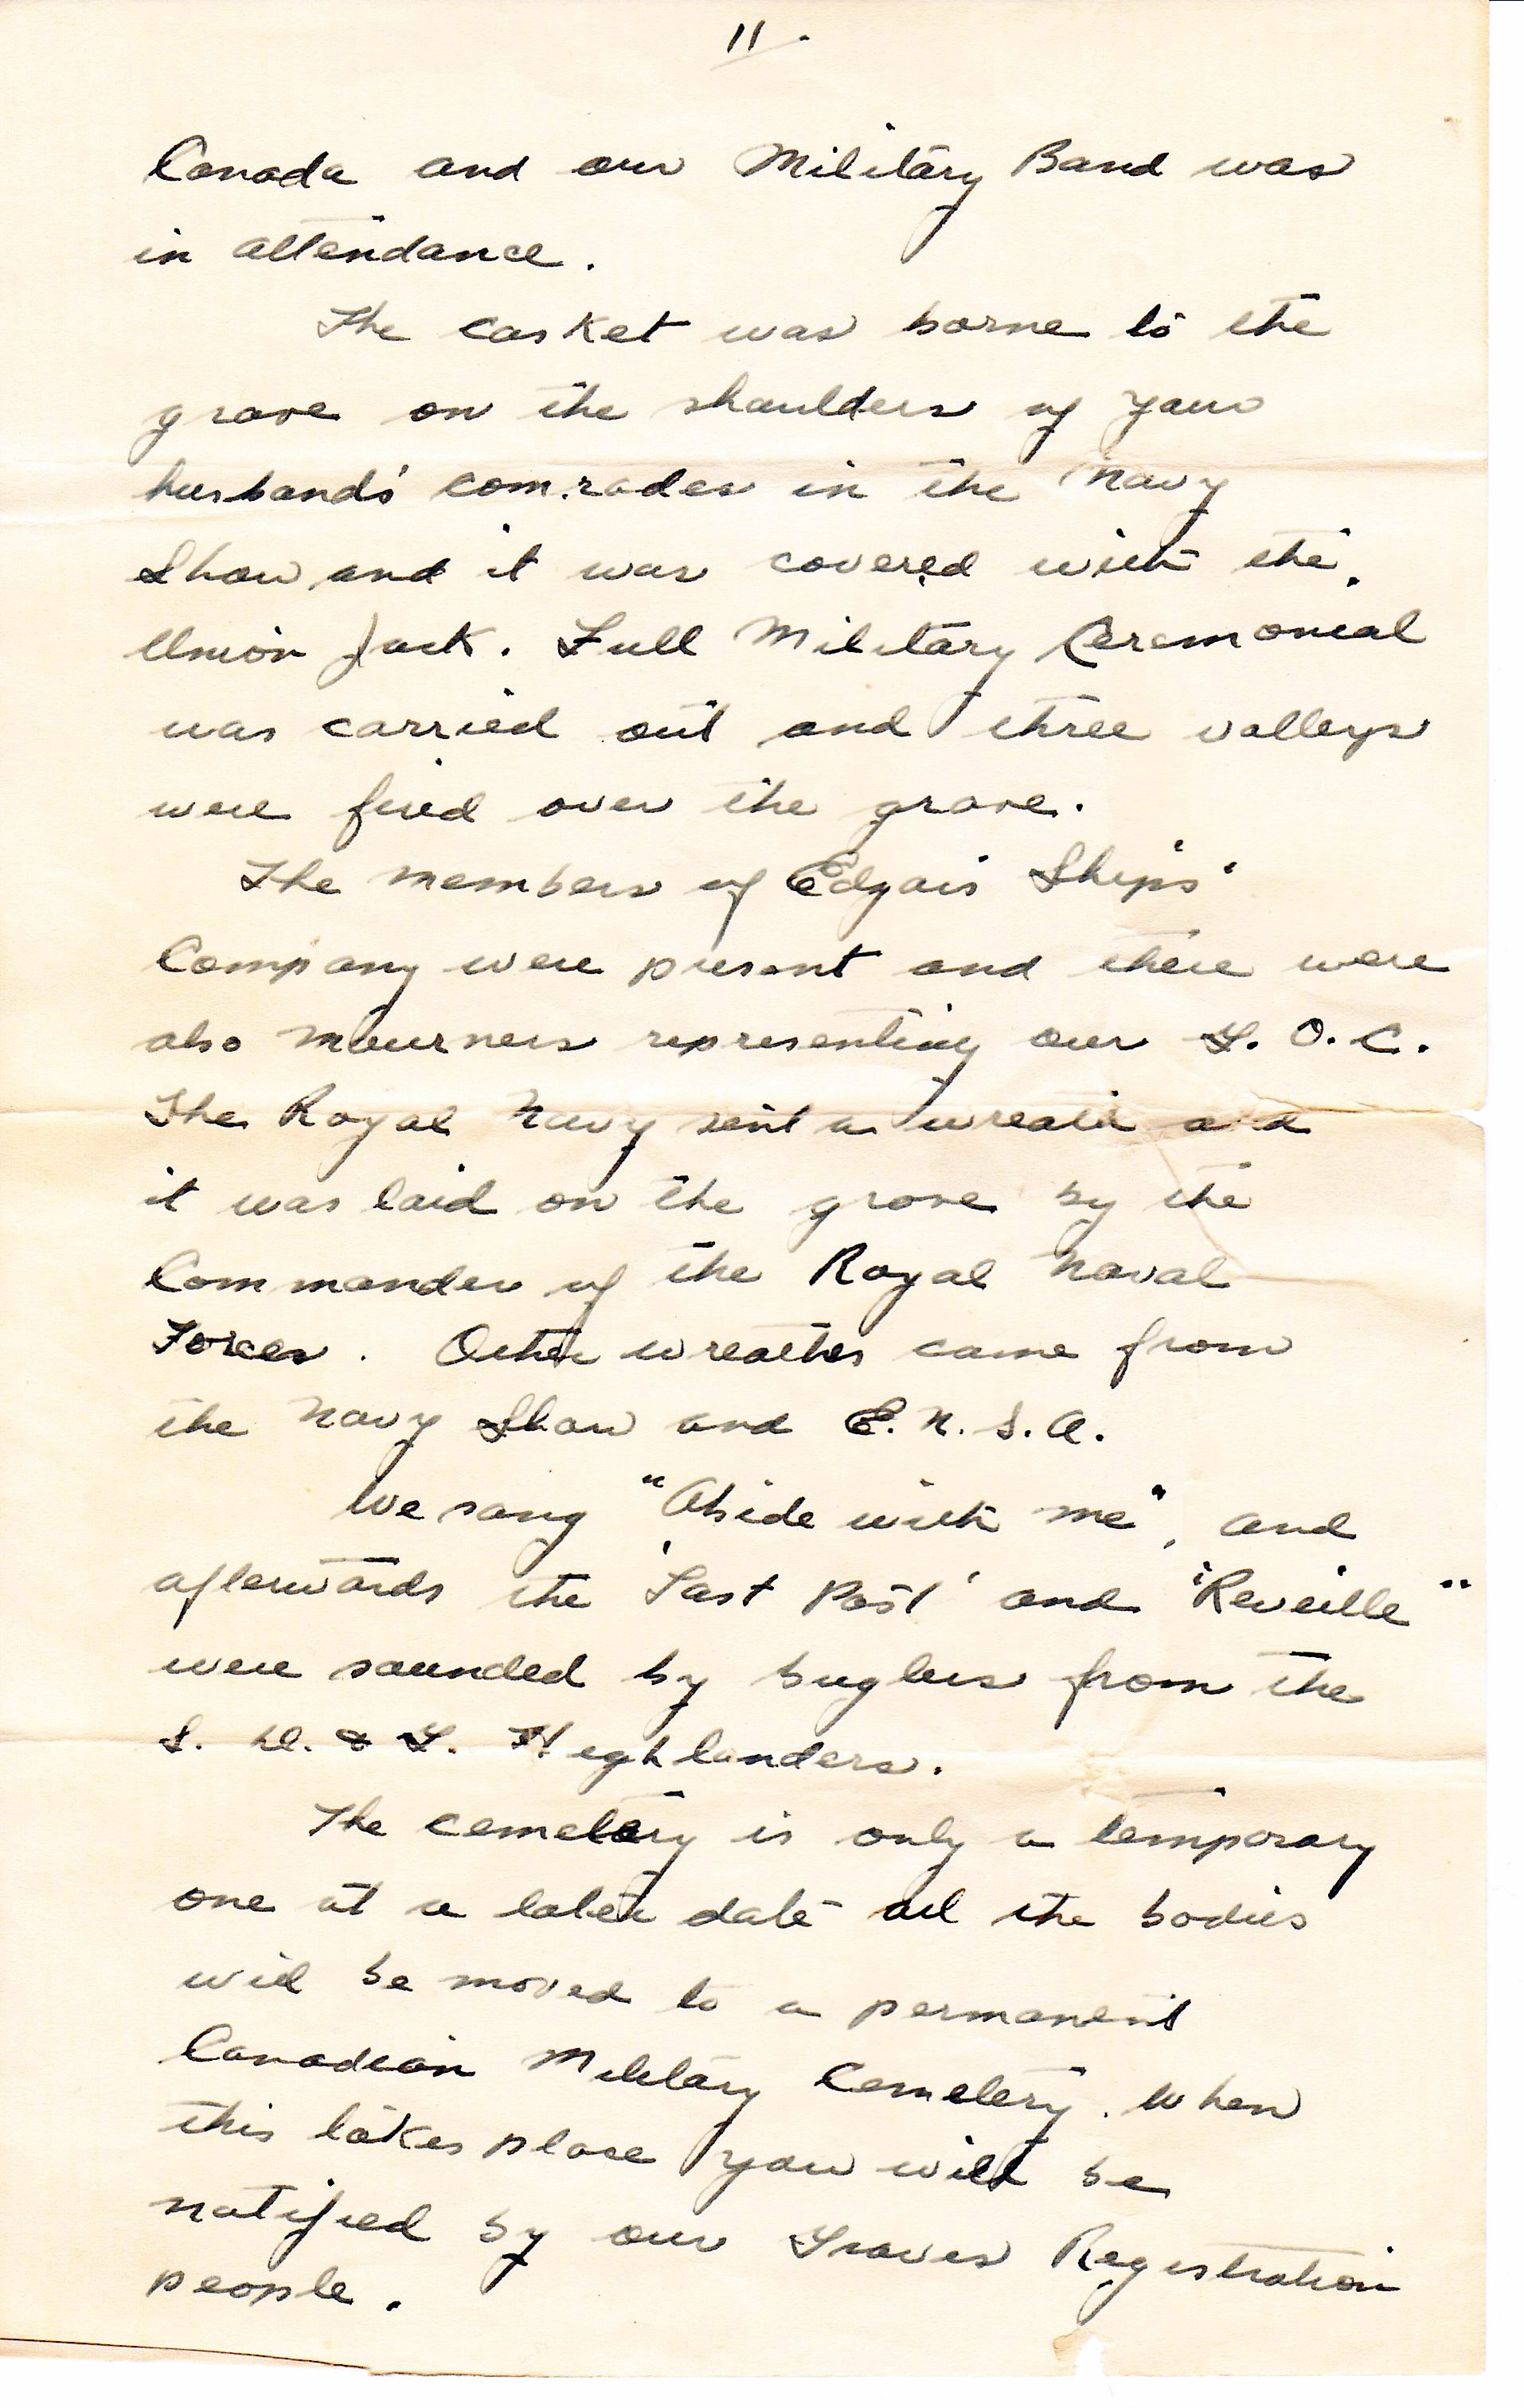 11.
Canada and our Military Band was
in attendance.
The casket was borne to the
grave on the shoulders of your
husband's comrades in the Navy
Show and it was covered with the
Union Jack. Full Military Ceremonial
was carried out and three valleys
were fired over the grave.
The members of Edgar's Ships'
Company were present and there were
also mourners representing our G.O.C.
The Royal Navy sent a wreath and
it was laid on the grave by the
Commander of the Royal Naval
Forces. Other wreathes came from
the Navy Show and E.N.S.A.
We sang "Abide with me", and
afterwards the 'Last Post' and "Reveille"
were sounded by buglers from the
S. D. & G. Highlanders.
The cemetery is only a temporary
one at a later date all the bodies
will be moved to a permanent
Canadian Military Cemetery. When
this takes place you will be
notified by our Graves Registration
people.